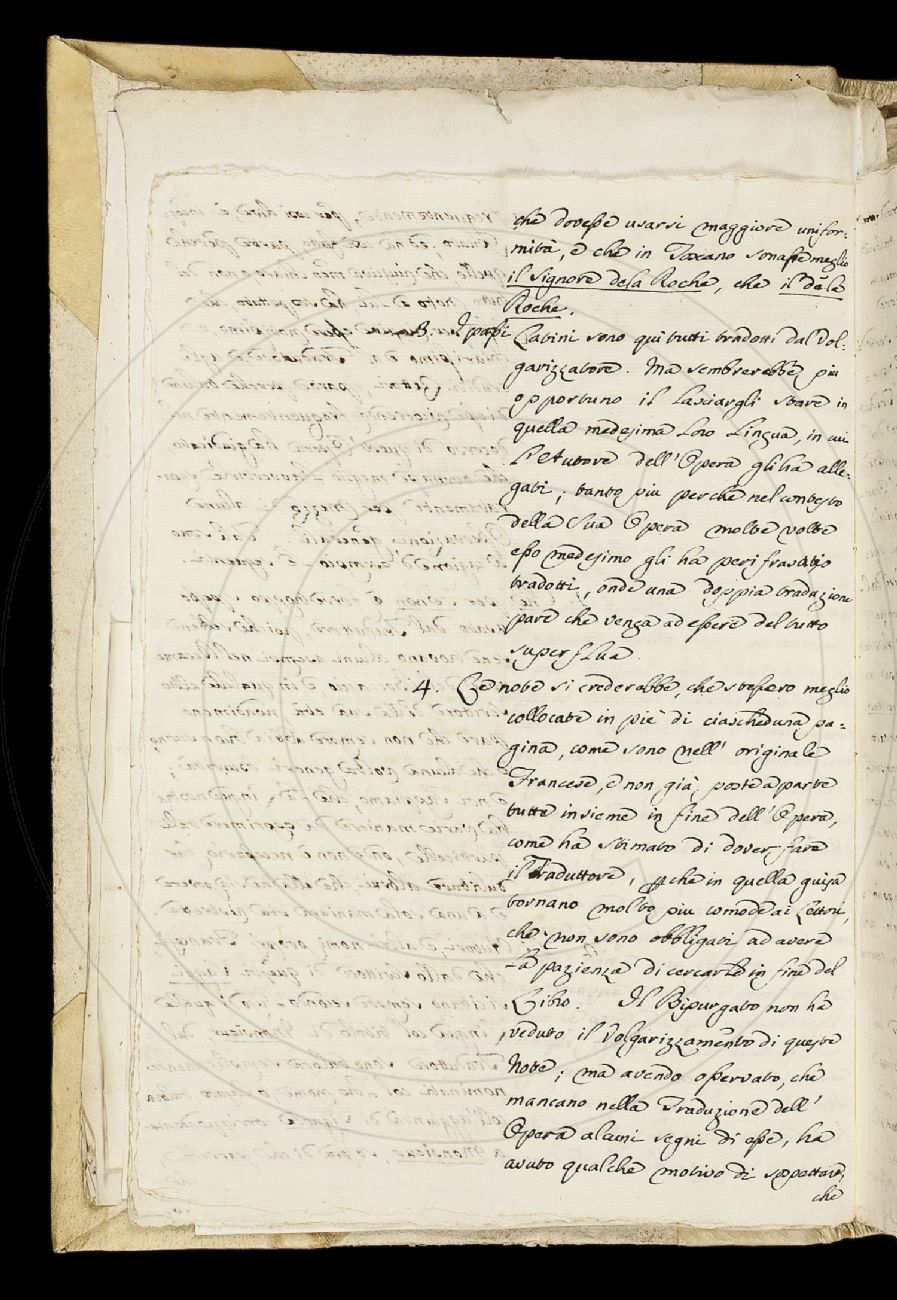 che dovesse usarsi maggiore unifor-
mità, e che in Toscano sonasse meglio
il Signore de la Roche, che il de la
Roche.
3. I passi
Latini sono qui tutti tradotti dal Vol-
garizzatore. Ma sembrerebbe più
opportuno il lasciargli stare in
quella medesima loro Lingua, in cui
l'Autore dell'Opera gli ha alle-
gati; tanto più perchè nel contesto
della Sua Opera molte volte
esso medesimo gli ha
tradotti, onde una doppia traduzione
pare che venga ad essere del tutto
superflua.
4. Le note si crederebbe, che stessero meglio
collocate in piè di ciascheduna pa-
gina, come sono nell'originale
Francese, e non già poste a parte
tutte insieme in fine dell'Opera,
come ha stimato di dover fare
il Traduttore, pche in quella guisa
tornano molto più comode ai Lettori,
che non sono obbligati ad avere
la pazienza di cercarle in fine del
Libro. Il Bipurgato non ha
veduto il Volgarizzamento di queste
Note; ma avendo osservato, che
mancano nella Traduzione dell'
Opera alcuni segni di esse, ha
avuto qualche motivo di sospettare,
che